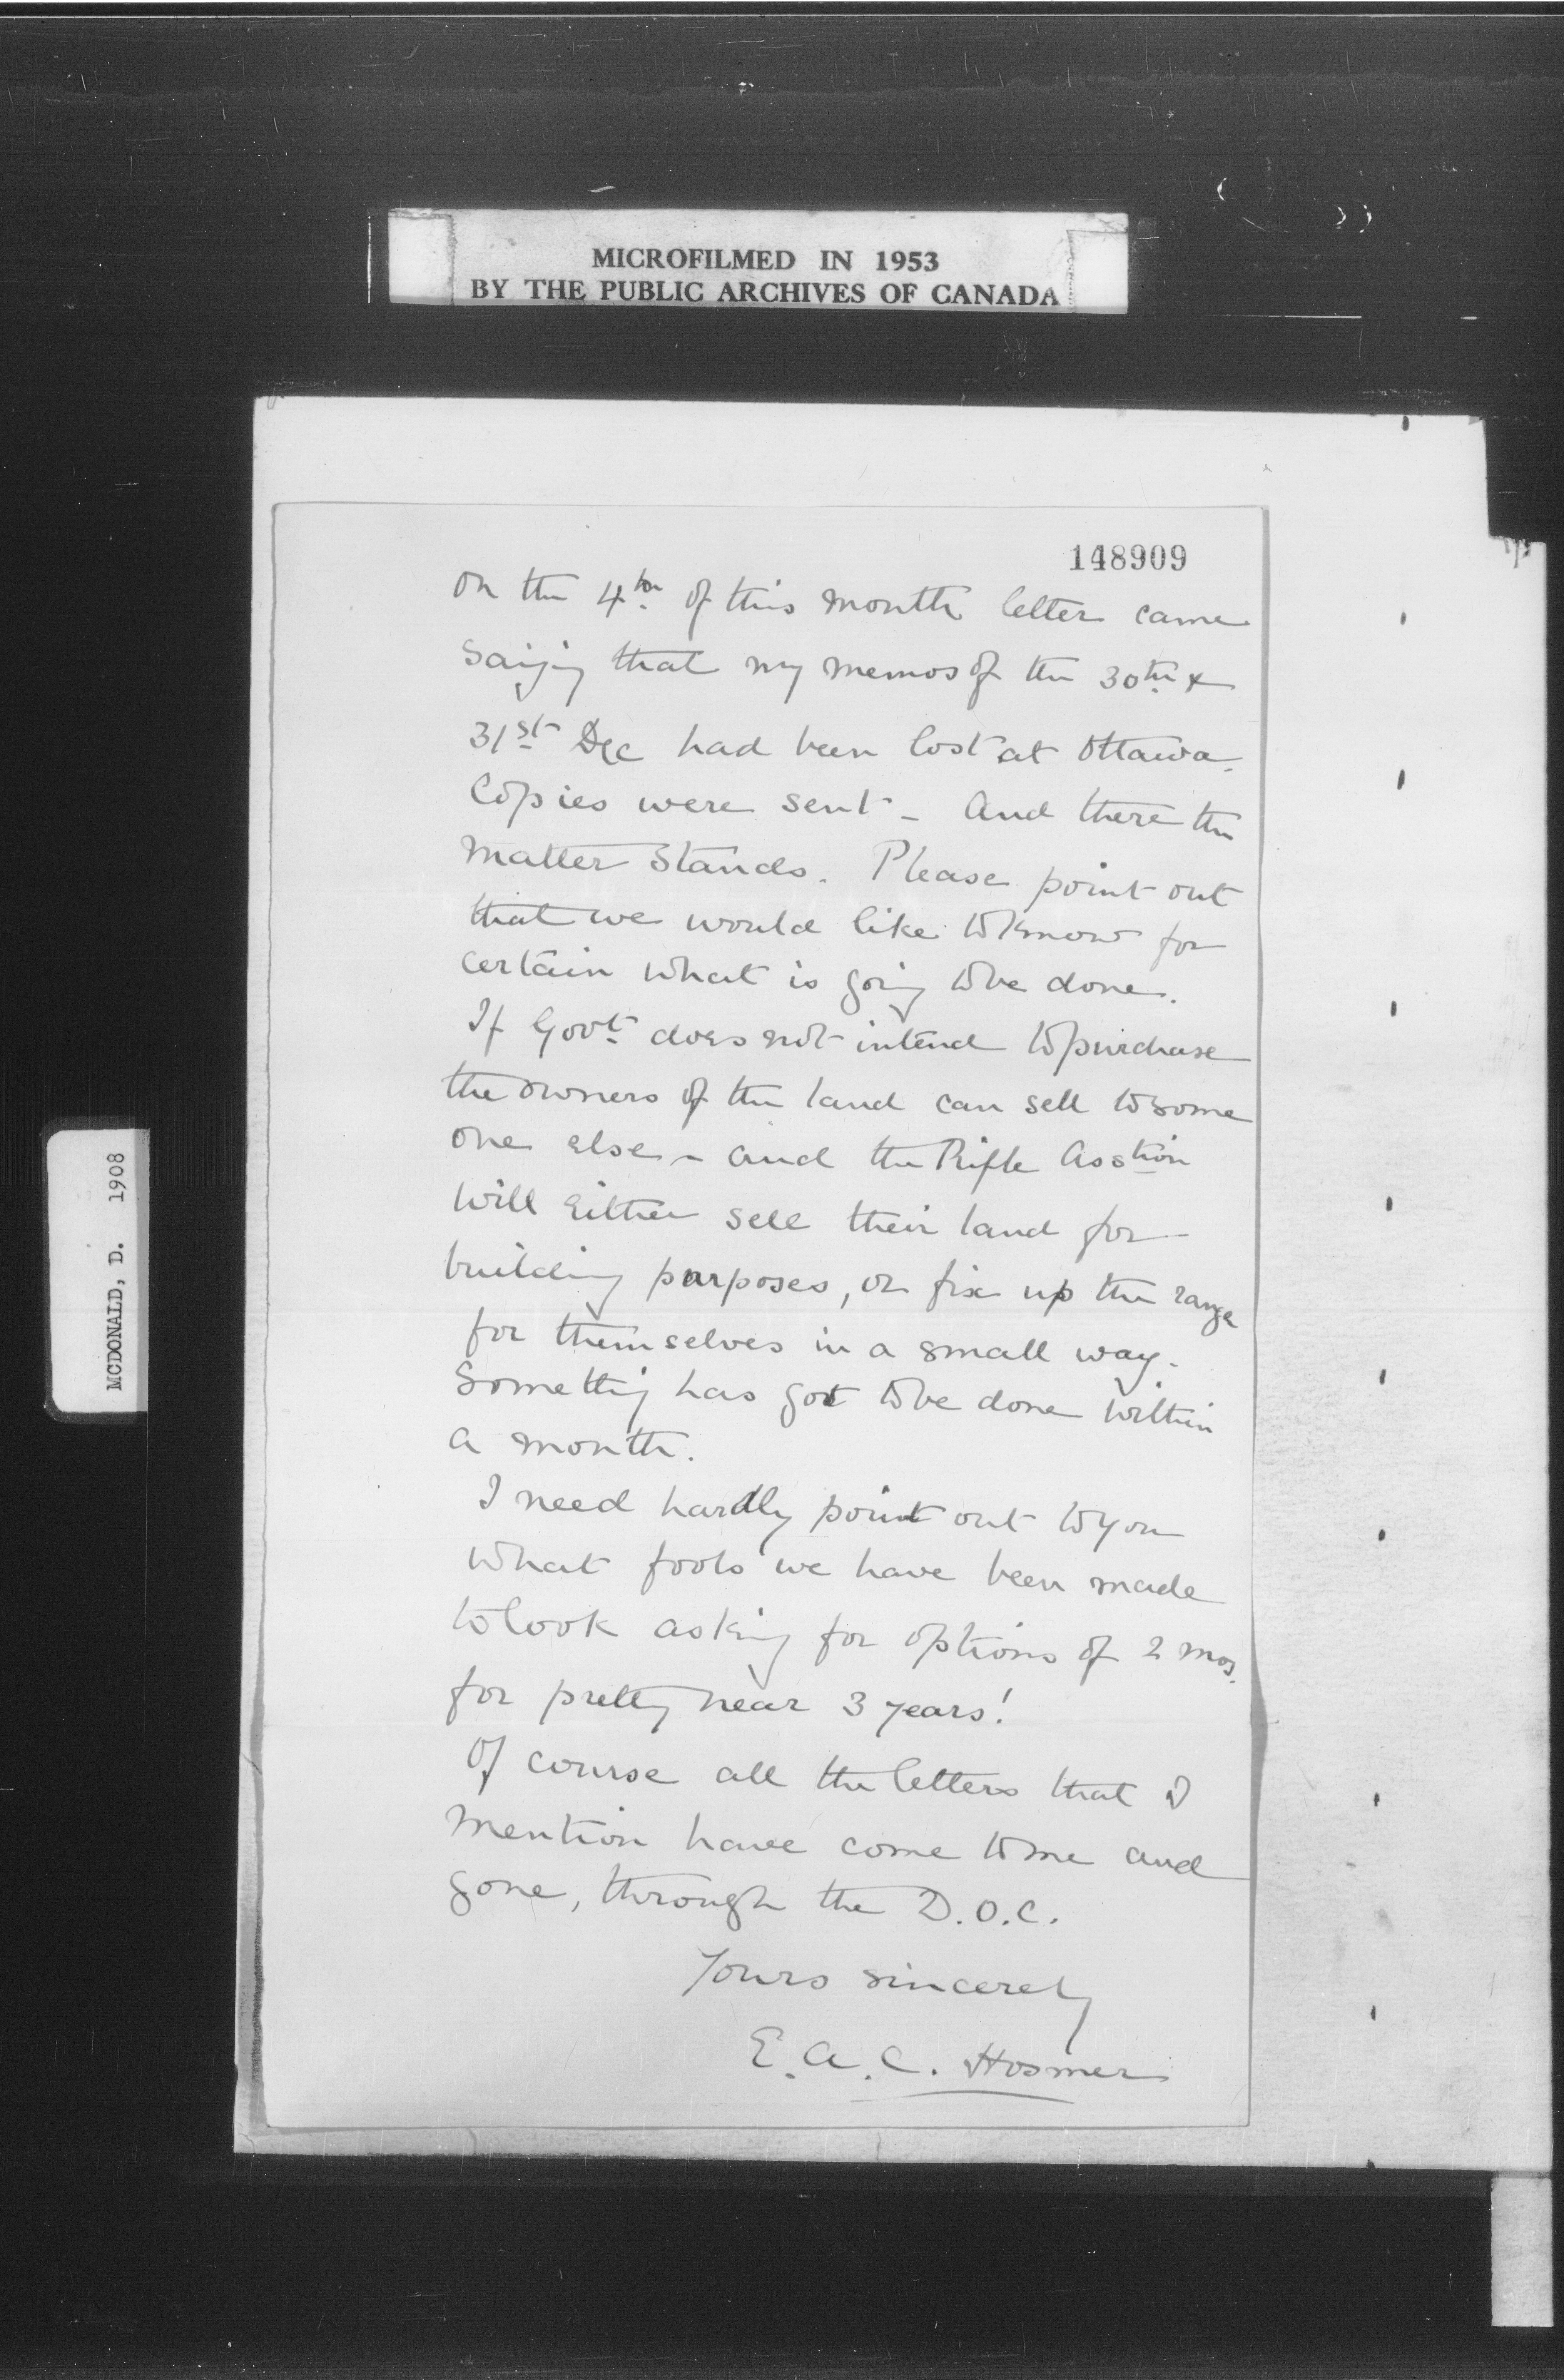 MICROFILMED IN 1953
BY THE PUBLIC ARCHIVES OF CANADA
148909
On the 4th of this month letter came
saying that my memos of the 30th &
31st Dec had been lost at Ottawa.
Copies were sent - And there the
matter stands. Please point out
that we would like to know for
certain what is going to be done.
If Govt does not intend to purchase
the owners of the land can sell to some
one else - and the Rifle Asstion
will either sell their land for
building purposes, or fix up the range
for themselves in a small way.
Something has got to be done within
a month.
I need hardly point out to you
what fools we have been made
to look asking for options of 2 mos.
for pretty near 3 years!
Of course all the letters that I
mention have come to me and
gone, through the D.O.C.
Yours sincerely
E.A.C. Hosmer
MCDONALD, D. 1908